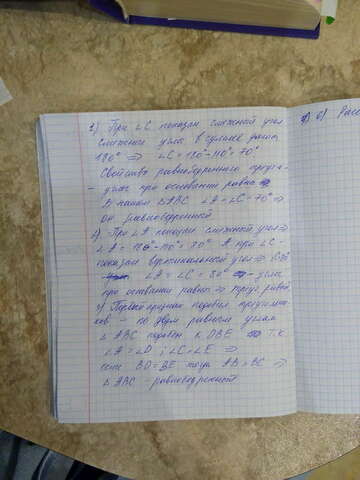 1) При ∠C показан смежный угол
смежные углы в сумме дают
180° ⇒ ∠C = 180° - 110° = 70°
Свойство равнобедренного треуго-
- углы при основании равны
В нашем △ABC ∠A = ∠C = 70° ⇒
он равнобедренный
2) При ∠A показан смежный угол ⇒
∠A = 180° - 100° = 80° А при ∠C -
показан вертикальный угол ⇒
∠A = ∠C = 80° - углы
при основании равны ⇒ треуг. равноб
3) Первый признак подобия треугольни-
ков - по двум равным углам
∠ ABC подобен к DBE т.к
∠A = ∠D ; ∠C = ∠E ⇒
если BD = BE тогда AB = BC ⇒
∠ ABC - равнобедренный
б) Расс